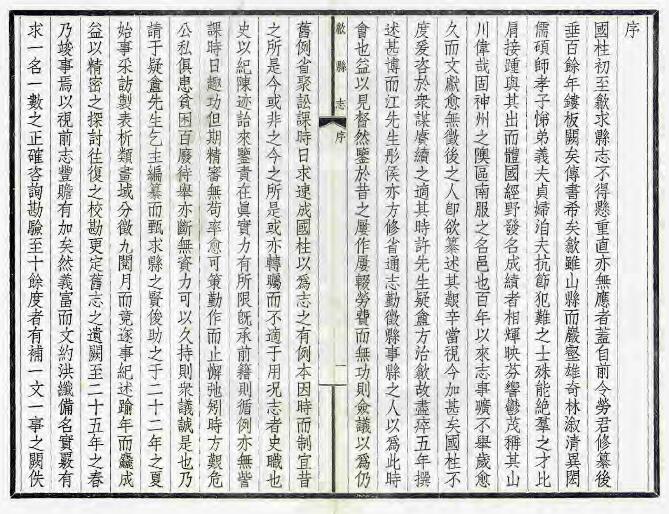 序
國柱初至歙求縣志不得懸重直亦無應者蓋自前令勞君修纂後
垂百餘年鏤板闕矣傳書希矣歙雖山縣而巖壑雄奇林溆清異閎
儒碩師孝子悌弟義夫貞婦洎夫抗節犯難之士殊能絕羣之才比
肩接踵與其出而體國經野發名成績者相輝映芬響鬱茂稱其山
川偉哉固神州之隩區南服之名邑也百年以來志事曠不舉歲愈
久而文獻愈無徵後之人卽欲纂述其艱辛當視今加甚矣國柱不
度爰咨於衆謀賡續之適其時許先生疑盦方治歙故盡瘁五年撰
述甚博而江先生彤侯亦方修省通志勤徵縣事縣之人以爲此時
會也益以見督然鑒於昔之屢作屢輟勞費而無功則僉議以爲仍
歙縣志 序 一
舊例省聚訟課時日求速成國柱以爲志之有例本因時而制宜昔
之所是今或非之今之所是或亦轉矚而不適于用况志者史職也
史以紀陳迹詒來鑒責在眞實力有所限旣承前籍則循例亦無訾
課時日趣功但期精審無苟率愈可策勤作而止懈弛矧時方艱危
公私俱患貧困百廢待舉亦斷無資力可以久持則衆議誠是也乃
請于疑盦先生乞主編纂而甄求縣之賢俊助之于二十二年之夏
始事采訪製表析類畫域分徵九閱月而竟逐事紀述踰年而纔成
益以精密之探討往復之校勘更定舊志之遺闕至二十五年之春
乃竣事焉以視前志豐贍有加矣然義富而文約洪纖備名實覈有
求一名一數之正確咨詢勘驗至十餘度者有補一文一事之闕佚